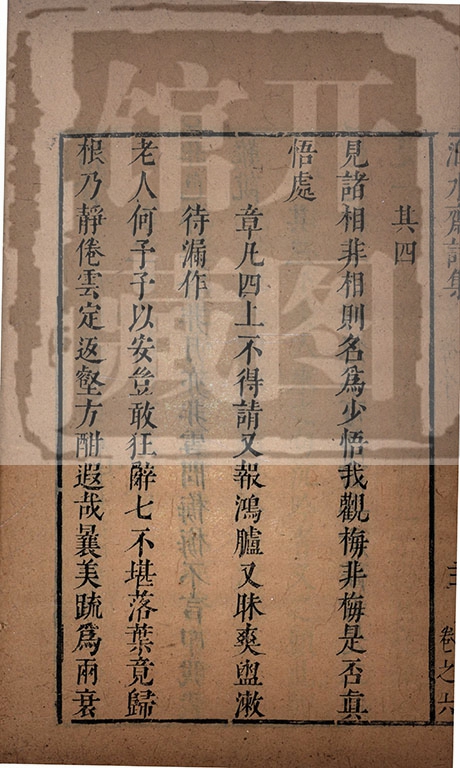 其四
見諸相非相則名為少悟我觀梅非梅是否真
悟處
章凡四上不得請又報鴻臚又昧爽盥漱
待漏作
老人何予予以安豈敢狂辭七不堪落葉竟歸
根乃靜倦雲定返壑方酣遐哉曩美疏為兩衰
卷之六